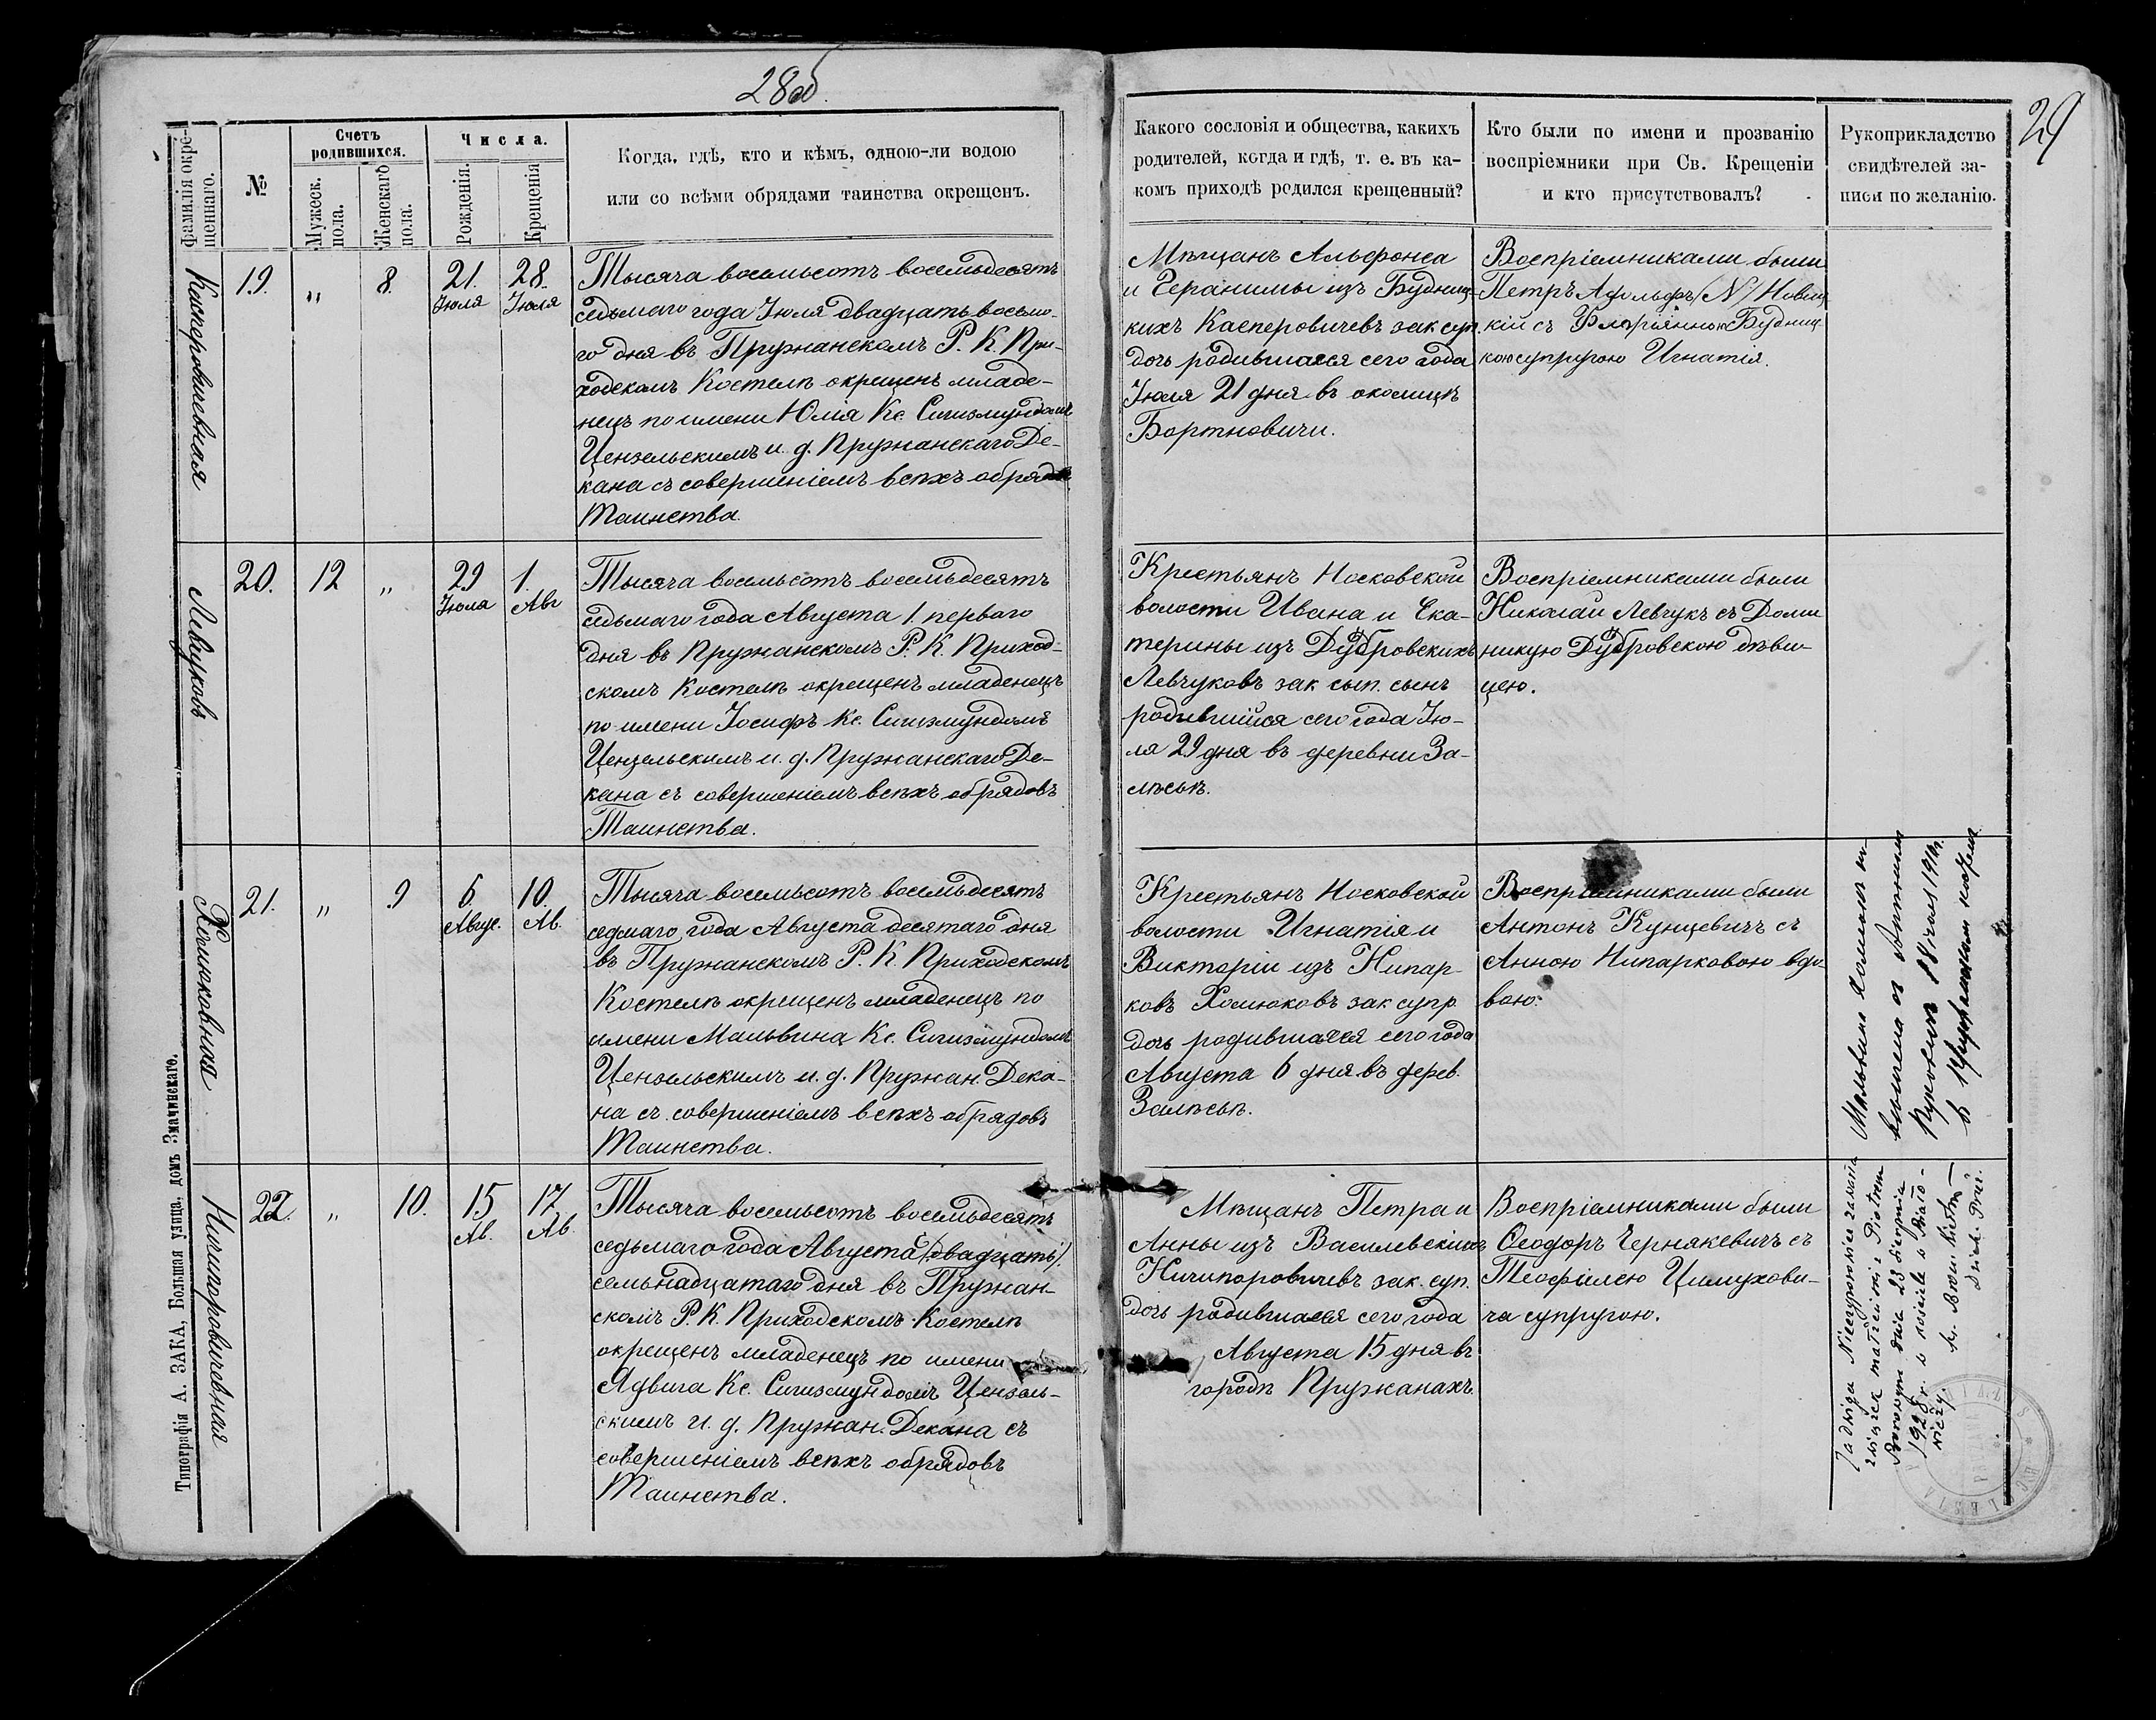 28об.
29
Фамилія окре-
щеннаго.
№
Счетъ
родившихся.
Мужеск.
пола.
Женскаго
пола.
Числа.
Рожденія.
Крещенія
Когда, гдѣ, кто и кѣмъ, одною-ли водою
или со всѣми обрядами таинства окрещенъ.
Какого сословія и общества, какихъ
родителей, когда и гдѣ, т. е. въ ка-
комъ приходѣ родился крещенный?
Кто были по имени и прозванію
воспріемники при Св. Крещеніи
и кто присутствовалъ?
Рукоприкладство
свидѣтелей за-
писи по желанію.
Касперовичевная
19. „ 8. 21. Іюля 28. Іюля
Тысяча восемьсотъ восемьдесятъ
седьмаго года Іюля двадцать восьмо-
го дня въ Пружанскомъ Р. К. При-
ходскомъ Костелѣ окрещенъ младе-
нецъ по имени Юлія Кс. Сигизмундомъ
Цензельскимъ и. д. Пружанскаго Де-
кана съ совершеніемъ всѣхъ обрядовъ
Таинства.
Мѣщанъ Альфонса
и Геранимы изъ Будниц-
кихъ Касперовичевъ зак. суп.
дочь родившаяся сего года
Іюля 21 дня въ околицѣ
Бортновичи.
Воспріемниками были
Петръ Адольфъ (N) Новиц
кій съ Флоріянною Будниц
кою супругою Игнатія.
Левчуковъ
20. 12 „ 29 Іюля 1. Авг
Тысяча восемьсотъ восемьдесятъ
седьмаго года Августа 1. перваго
дня въ Пружанскомъ Р. К. Приход-
скомъ Костелѣ окрещенъ младенецъ
по имени Іосифъ Кс. Сигизмундомъ
Цензельскимъ и. д. Пружанскаго Де-
кана съ совершеніемъ всѣхъ обрядовъ
Таинства.
Крестьянъ Носковской
волости Ивана и Ека-
терины изъ Дубровскихъ
Левчуковъ зак. суп. сынъ
родившійся сего года Ію-
ля 29 дня въ деревни За-
лѣсьѣ.
Воспріемниками были
Николай Левчукъ съ Доми
никую Дубровскою дѣви-
цею.
Хомюковная
21. „ 9 6. Авгус. 10. Ав.
Тысяча восемьсотъ восемьдесятъ
седмаго года Августа десятаго дня
въ Пружанскомъ Р. К. Приходскомъ
Костелѣ окрещенъ младенецъ по
имени Мальвина Кс. Сигизмундомъ
Цензельскимъ и. д. Пружан. Дека-
на съ совершеніемъ всѣхъ обрядовъ
Таинства.
Крестьянъ Носковской
волости Игнатія и
Викторіи изъ Нипар-
ковъ Хомюковъ зак. супр.
дочь родившаяся сего года
Августа 6 дня въ дерев.
Залѣсьѣ.
Воспріемниками были
Антонъ Кунцевичъ съ
Анною Нипарковою вдо-
вою.
Мальвина
вышла
1914г.
Ничипоровичевная
22. „ 10. 15 Ав. 17. Ав.
Тысяча восемьсотъ восемьдесятъ
седьмаго года Августа (двадцать)
семьнадцатаго дня въ Пружан-
скомъ Р. К. Приходскомъ Костелѣ
окрещенъ младенецъ по имени
Ядвига Кс. Сигизмундомъ Цензель-
скимъ и. д. Пружан. Декана съ
совершеніемъ всѣхъ обрядовъ
Таинства.
Мѣщанъ Петра и
Анны изъ Василевскихъ
Ничипоровичевъ зак. суп.
дочь родившаяся сего года
Августа 15 дня въ
городѣ Пружанахъ.
Воспріемниками были
Ѳеодоръ Чернякевичъ съ
Теофілею Цимухови-
ча супругою.
Jadwiga Nieczyporowicz zawarła
związek małżeński z Piotrem
dnia 23 sierpnia
1928 r. w kościele w Biało-
wieży.
Типографія А. ЗАКА, Большая улица, домъ Змачинскаго.